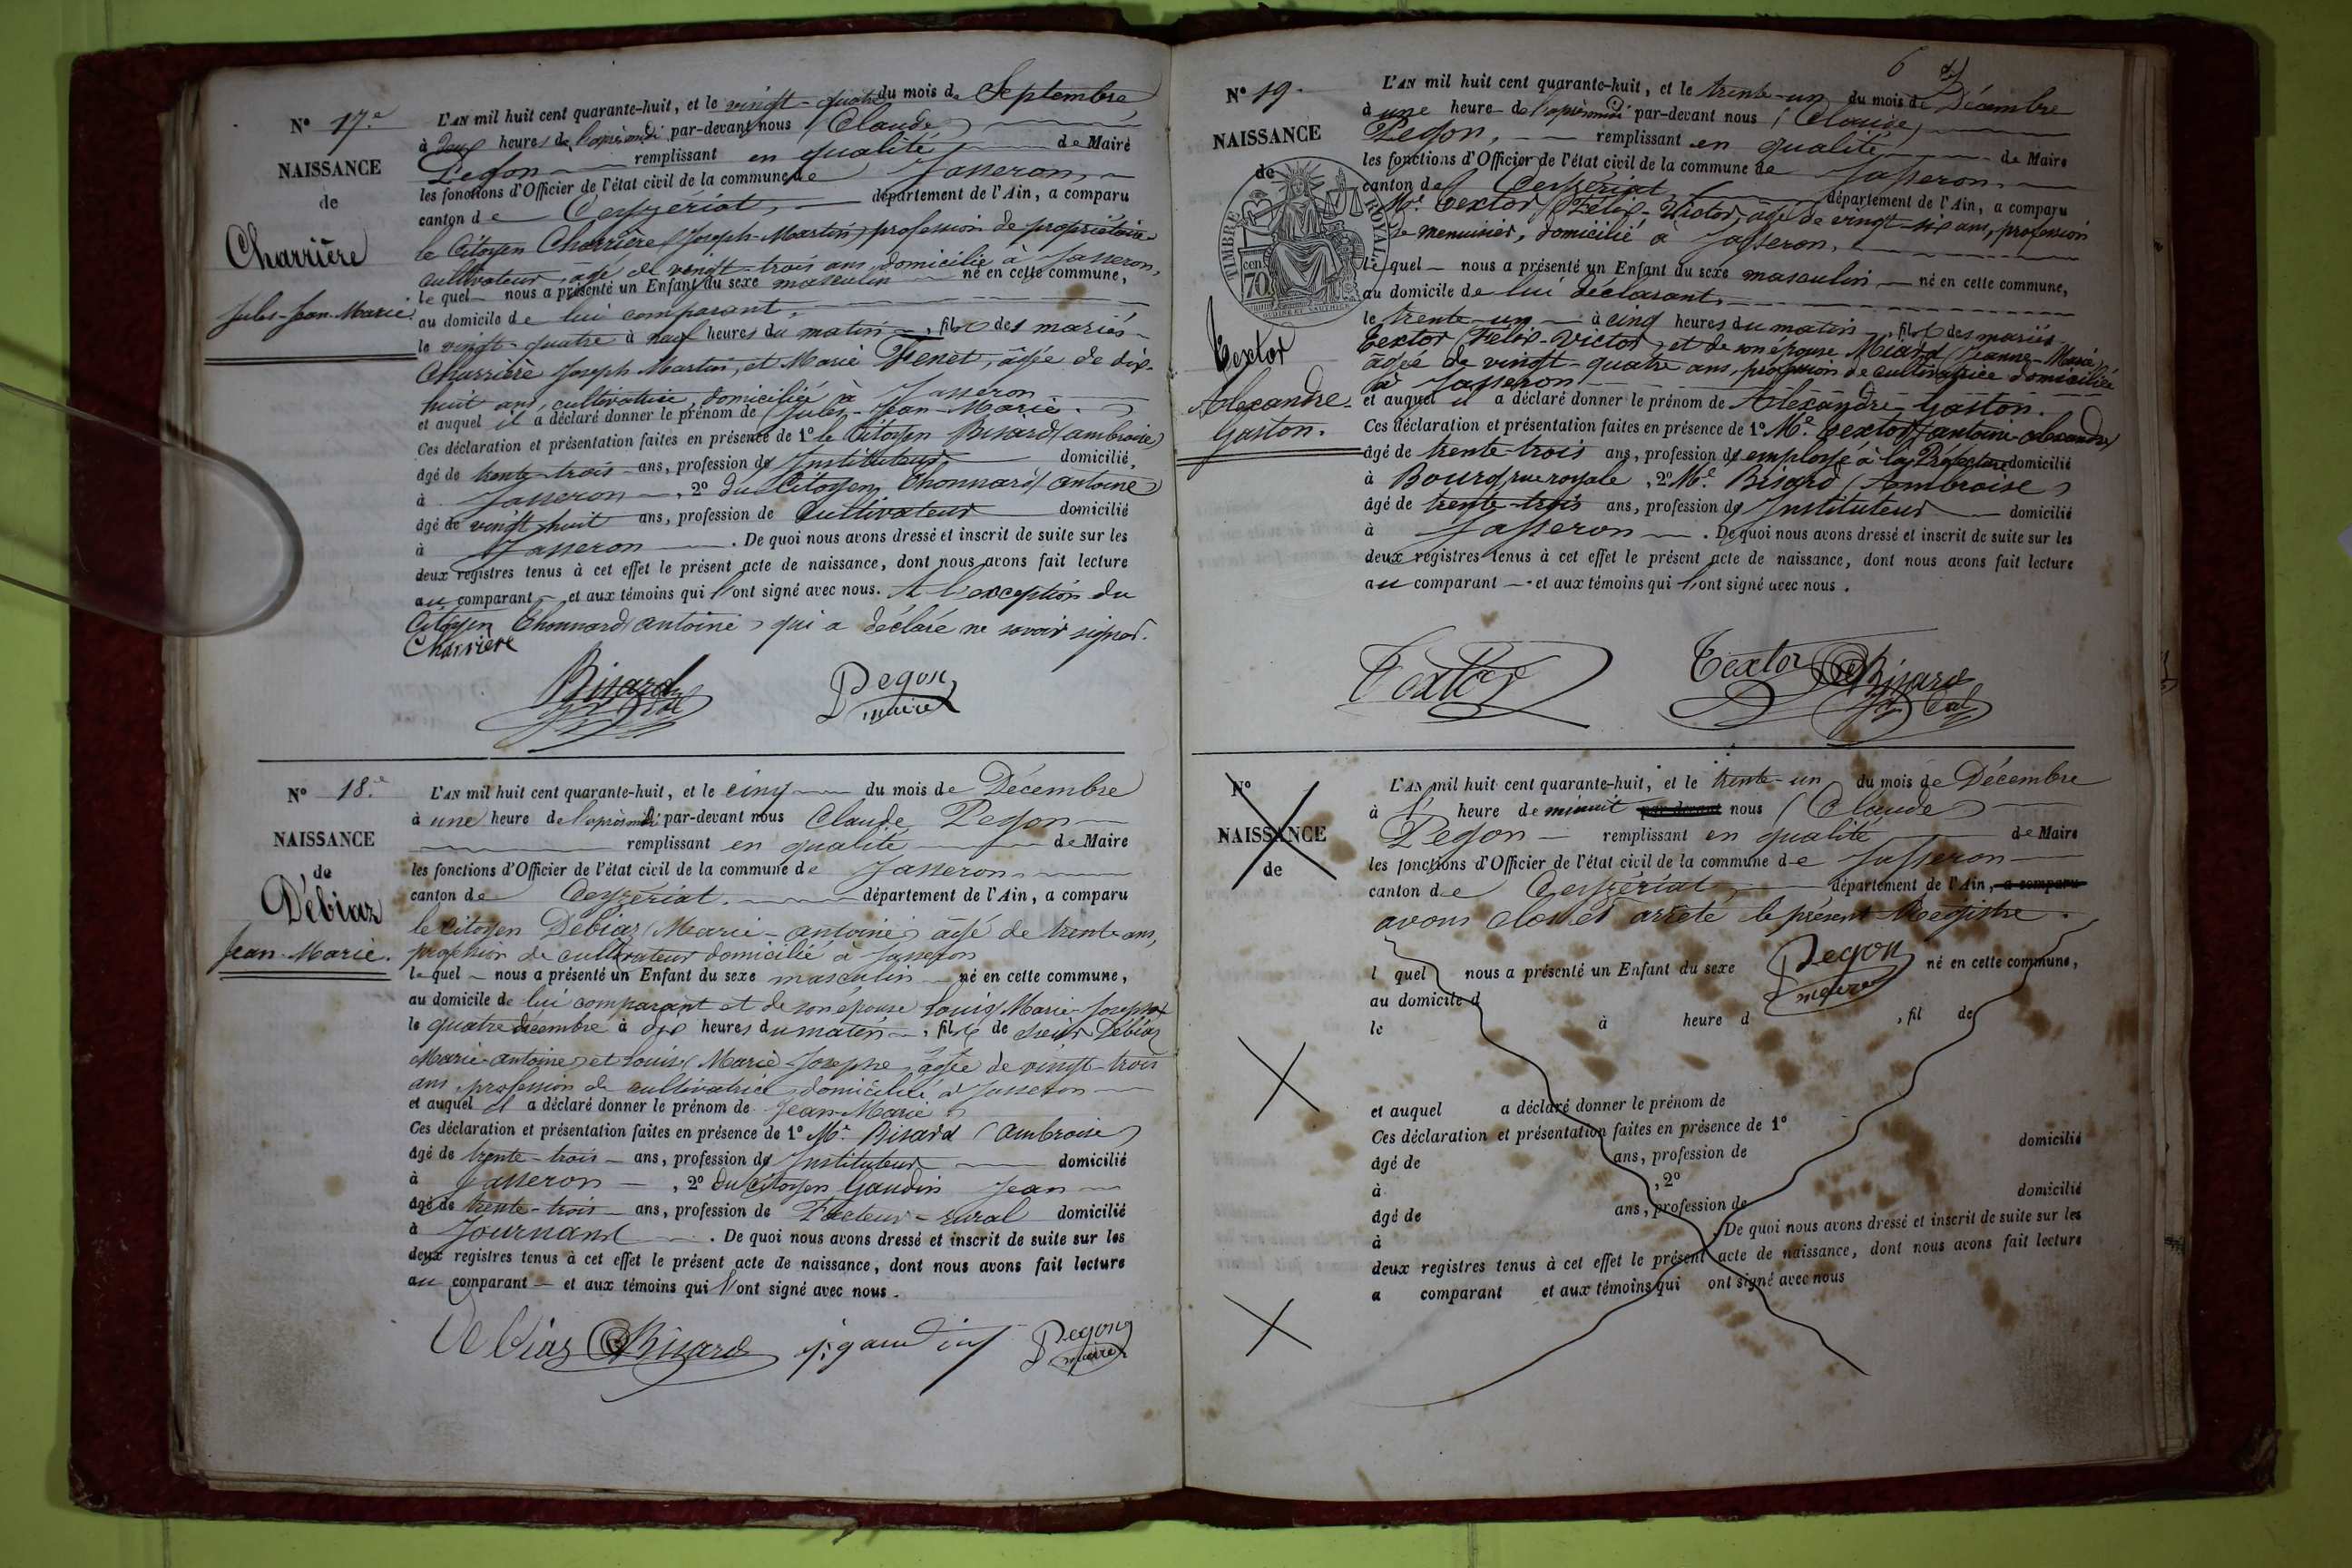 N° 17.e
NAISSANCE
de
Charrière
Jules-Jean-Marie.
L'AN mil huit cent quarante-huit, et le vingt-quatre du mois de Septembre
à deux heures de l'après-midi par-devant nous (Claude)
Pegon remplissant en qualité de Maire
les fonctions d'Officier de l'état civil de la commune de Jasseron
canton de Ceyzériat, département de l'Ain, a comparu
le Citoyen Charrière (Joseph-Martin) profession de propriétaire
cultivateur, âgé de vingt-trois ans, domicilié à Jasseron,
lequel nous a présenté un Enfant du sexe masculin né en cette commune,
au domicile de lui comparant,
le vingt-quatre à neuf heures du matin, fils des mariés
Charrière Joseph Martin, et Marie Fenet, âgée de dix-
huit ans, cultivatrice, domiciliée à Jasseron
et auquel il a déclaré donner le prénom de (Jules-Jean-Marie.)
Ces déclaration et présentation faites en présence de 1° le Citoyen Bisard (ambroise)
âgé de trente-trois ans, profession de Instituteur domicilié,
à Jasseron, 2° du Citoyen Chonnard (antoine)
âgé de vingt huit ans, profession de Cultivateur domicilié
à Jasseron. De quoi nous avons dressé et inscrit de suite sur les
deux registres tenus à cet effet le présent acte de naissance, dont nous avons fait lecture
au comparant et aux témoins qui l'ont signé avec nous. A l'exception du
Citoyen Chonnard (antoine) qui a déclaré ne savoir signer.
Charrière
Bisard
Pegon
maire
N° 18.e
NAISSANCE
de
Débiaz
Jean-Marie.
L'AN mil huit cent quarante-huit, et le cinq du mois de Décembre
à une heure de l'après-midi par-devant nous Claude Pegon
remplissant en qualité de Maire
les fonctions d'Officier de l'état civil de la commune de Jasseron
canton de Ceyzériat. département de l'Ain, a comparu
le Citoyen Débiaz (Marie-antoine) âgé de trente ans,
profession de cultivateur domicilié à Jasseron
lequel nous a présenté un Enfant du sexe masculin né en cette commune,
au domicile de lui comparant et de son épouse Louis Marie-Josephe
le quatre décembre à dix heures du matin, fils de Débiaz
Marie-antoine) et Louis (Marie-Josephe, âgée de vingt-trois
ans, profession de cultivatrice, domiciliée à Jasseron
et auquel il a déclaré donner le prénom de Jean-Marie
Ces déclaration et présentation faites en présence de 1° Mr. Bisard (ambroise)
âgé de trente-trois ans, profession de Instituteur domicilié
à Jasseron, 2° du Citoyen Gaudin Jean
âgé de trente-trois ans, profession de Facteur-rural domicilié
à Journand. De quoi nous avons dressé et inscrit de suite sur les
deux registres tenus à cet effet le présent acte de naissance, dont nous avons fait lecture
au comparant et aux témoins qui l'ont signé avec nous.
Debiaz Bisard j. gaudin Pegon
maire
6
N° 19.
NAISSANCE
de
TIMBRE ROYAL
70 cen
Textor
Alexandre-
Gaston.
L'AN mil huit cent quarante-huit, et le trente-un du mois de Décembre
à une heure de l'après-midi par-devant nous (Claude)
Pegon, remplissant en qualité de Maire
les fonctions d'Officier de l'état civil de la commune de Jasseron
canton de Ceyzériat, département de l'Ain, a comparu
Mr. Textor (Félix-Victor) âgé de vingt-six ans, profession
de menuisier, domicilié à Jasseron,
lequel nous a présenté un Enfant du sexe masculin né en cette commune,
au domicile de lui déclarant,
le trente-un à cinq heures du matin, fils des mariés
Textor (Félix-Victor) et de son épouse Miard (Jeanne-Marie)
âgée de vingt-quatre ans, profession de cultivatrice domiciliée
à Jasseron
et auquel il a déclaré donner le prénom de Alexandre Gaston.
Ces déclaration et présentation faites en présence de 1° Mr. Textor (antoine-alexandre)
âgé de trente-trois ans, profession d'employé à la Préfecture domicilié
à Bourg rue royale, 2° Mr. Bisard (Ambroise)
âgé de trente-trois ans, profession de Instituteur domicilié
à Jasseron. De quoi nous avons dressé et inscrit de suite sur les
deux registres tenus à cet effet le présent acte de naissance, dont nous avons fait lecture
au comparant et aux témoins qui l'ont signé avec nous.
Textor Textor Bisard
N°
NAISSANCE
de
L'AN mil huit cent quarante-huit, et le trente-un du mois de Décembre
à l'heure de minuit par-devant nous (Claude)
Pegon remplissant en qualité de Maire
les fonctions d'Officier de l'état civil de la commune de Jasseron
canton de Ceyzériat, département de l'Ain, a comparu
avons clos et arrêté le présent Registre.
l quel nous a présenté un Enfant du sexe né en cette commune,
Pegon
maire
au domicile d
le à heure d , fil de
et auquel a déclaré donner le prénom de
Ces déclaration et présentation faites en présence de 1°
âgé de ans, profession de domicilié
à , 2°
âgé de ans, profession de domicilié
à . De quoi nous avons dressé et inscrit de suite sur les
deux registres tenus à cet effet le présent acte de naissance, dont nous avons fait lecture
a comparant et aux témoins qui ont signé avec nous